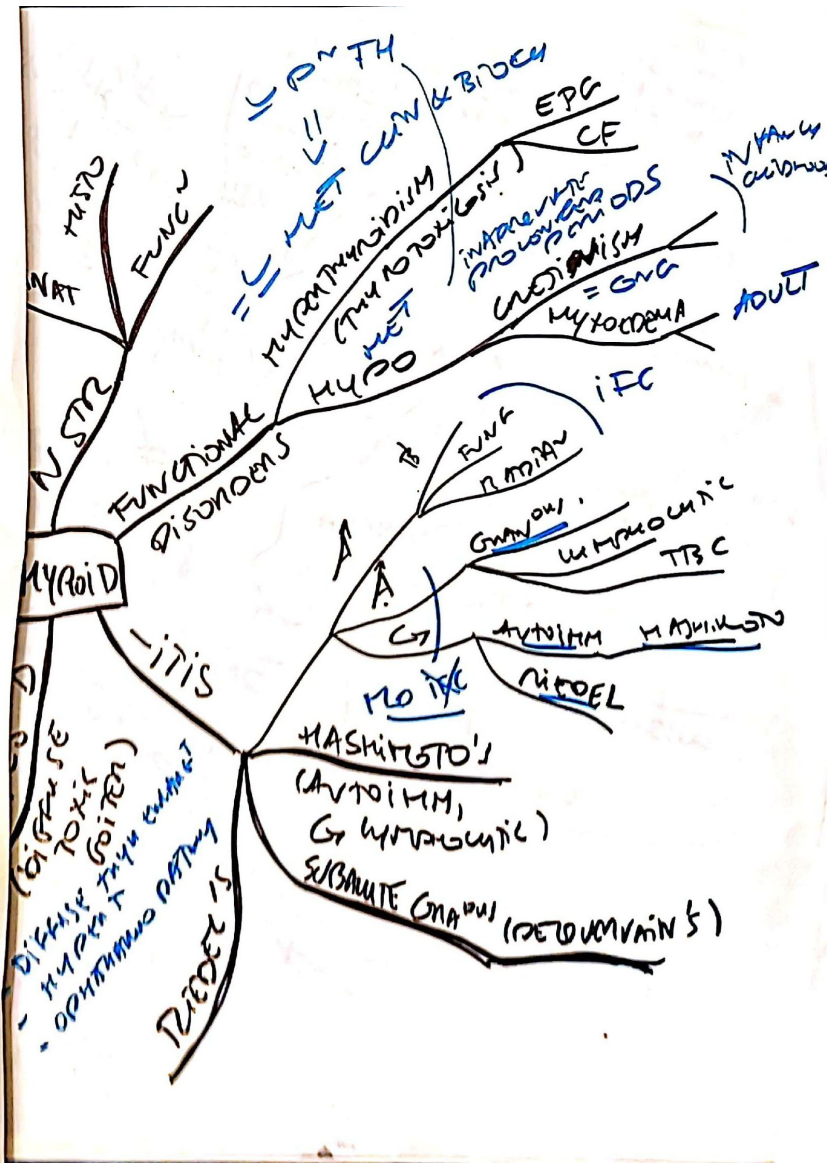 THYROID
N STR
NAT
HISTO
FUNCᴺ
FUNCTIONAL
DISORDERS
HYPERTHYROIDISM
(THYROTOXICOSIS)
Pᴺ TH
MET CLIN & BIOCH
EPG
CF
HYPO
MET
INADEQUATE
PROLONGED
PERIODS
CRETINISM
= CNG
INFANCY
CHILDHOOD
MYXOEDEMA
ADULT
-ITIS
A
B
FUNG
RADIAᴺ
IFC
A
GRANᴼᵁˢ.
LYMPHOCYTIC
TBC
G
AUTOIMM HASHIMOTO
RIEDEL
NO IFC
HASHIMOTO'S
(AUTOIMM,
G LYMPHOCYTIC)
SUBACUTE GRAᴼᵁˢ (DEQUERVAIN'S)
RIEDEL'S
(DIFFUSE
TOXIC
GOITER)
- DIFFUSE THYR ENLARGᵀ
- HYPER T
- OPHTHALMOPATHY